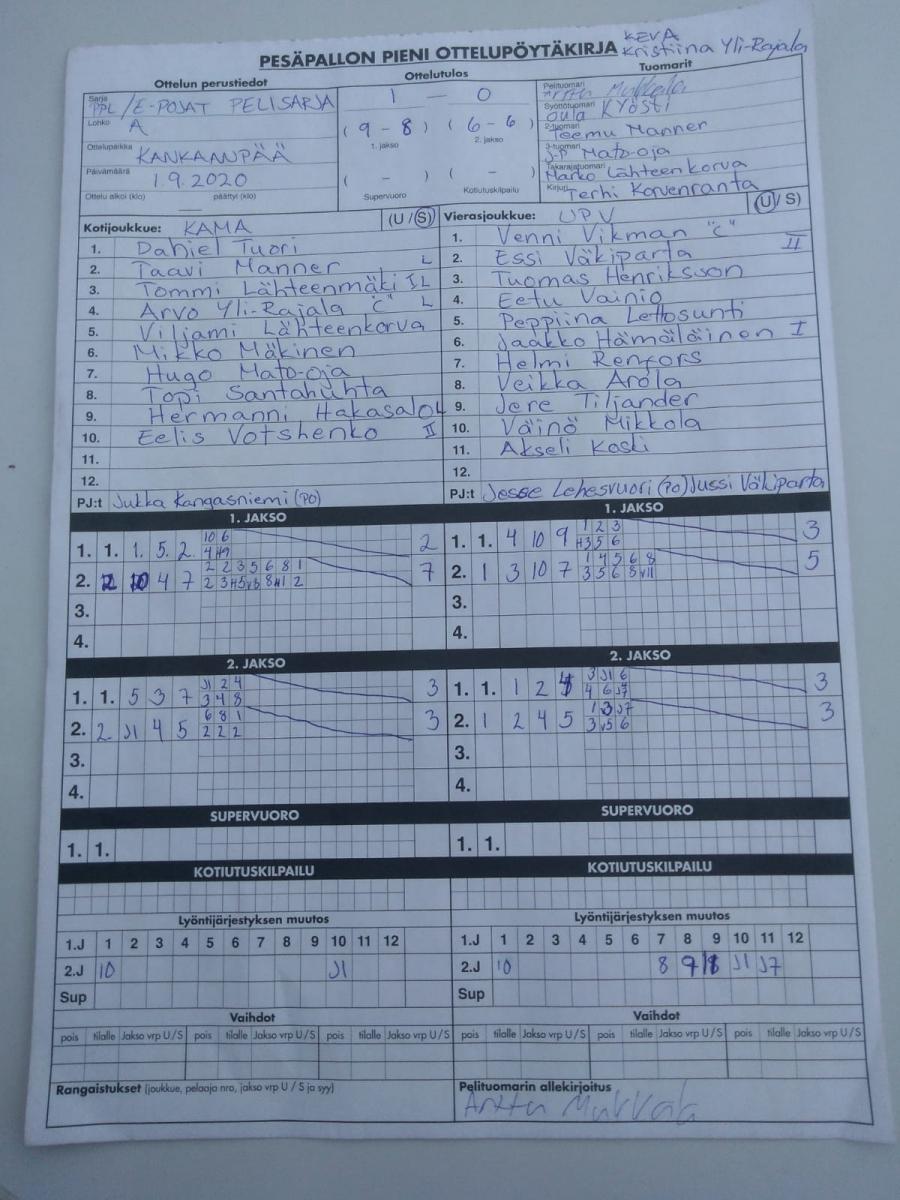 KEVA
PESÄPALLON PIENI OTTELUPÖYTÄKIRJA Kristiina Yli-Rajala
Ottelun perustiedot
Sarja PPL/E-POJAT PELISARJA
Lohko A
Ottelupaikka KANKAANPÄÄ
Päivämäärä 1.9.2020
Ottelu alkoi (klo) päättyi (klo)
Ottelutulos
1 — 0
(9 - 8) (6 - 6)
1. jakso 2. jakso
( - ) ( - )
Supervuoro Kotiutuskilpailu
Tuomarit
Pelituomari Arttu
Syöttötuomari Oula Kyösti
2-tuomari Teemu Manner
3-tuomari J-P Mato-oja
Takarajatuomari Marko Lähteenkorva
Kirjuri Terhi Korvenranta
Kotijoukkue: KAMA (U/S)
1. Daniel Tuori
2. Taavi Manner L
3. Tommi Lähteenmäki I L
4. Arvo Yli-Rajala "C" L
5. Viljami Lähteenkorva
6. Mikko Mäkinen
7. Hugo Mato-oja
8. Topi Santahuhta
9. Hermanni Hakasalo L
10. Eelis Votshenko II
11.
12.
PJ:t Jukka Kangasniemi (PO)
Vierasjoukkue: UPV (U/S)
1. Venni Vikman "C"
2. Essi Väkiparta II
3. Tuomas Henriksson
4. Eetu Vainio
5. Peppiina Lettosunti
6. Jaakko Hämäläinen I
7. Helmi Renfors
8. Veikka Arola
9. Jere Tiljander
10. Väinö Mikkola
11. Akseli Koski
12.
PJ:t Jesse Lehesvuori (PO) Jussi Väkiparta
1. JAKSO
1. 1. 1. 5. 2. 10 6 2
2. 4 7 2 2 3 5 6 8 1 7
3.
4.
1. JAKSO
1. 1. 4 10 9 1 2 3 3
3 5 6
2. 1 3 10 7 1 4 5 6 8 5
3 5 6 8
3.
4.
2. JAKSO
1. 1. 5 3 7 J1 2 4 3
3 4 8
2. 2 J1 4 5 6 8 1 3
2 2 2
3.
4.
2. JAKSO
1. 1. 1 2 3 J1 6 3
4 6 J7
2. 1 2 4 5 1 3 J7 3
3 5 6
3.
4.
SUPERVUORO
1. 1.
SUPERVUORO
1. 1.
KOTIUTUSKILPAILU
KOTIUTUSKILPAILU
Lyöntijärjestyksen muutos
1.J 1 2 3 4 5 6 7 8 9 10 11 12
2.J 10 J1
Sup
Lyöntijärjestyksen muutos
1.J 1 2 3 4 5 6 7 8 9 10 11 12
2.J 10 8 9 J1 J7
Sup
Vaihdot
pois tilalle Jakso vrp U/S pois tilalle Jakso vrp U/S pois tilalle Jakso vrp U/S
Vaihdot
pois tilalle Jakso vrp U/S pois tilalle Jakso vrp U/S pois tilalle Jakso vrp U/S
Rangaistukset (joukkue, pelaaja nro, jakso vrp U / S ja syy)
Pelituomarin allekirjoitus
Arttu